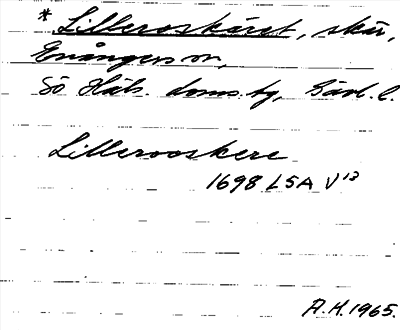 * Lilleroskäret, skär,
Enångers sn,
Sö Häls. doms.tg, Gävl. l.
Lillerooskere
1698 LSA V¹³
A.H. 1965.